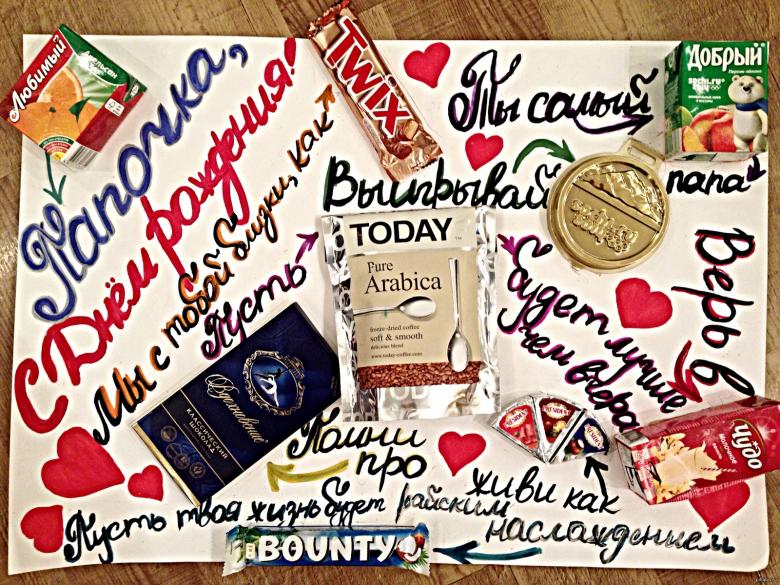 Любимый
Апельсин
Папочка,
С Днём рождения!
Мы с тобой близки, как
TWIX
Ты самый
Добрый
sochi.ru
папа
Выигрывай
Пусть
TODAY
Pure
Arabica
freeze dried coffee
soft & smooth
delicious blend
www.today-coffee.com
TODAY
будет лучше
чем вчера
Верь в
Чудо
молочное
Помни
про
Вдохновение
КЛАССИЧЕСКИЙ
ШОКОЛАД
живи как
PRESIDENT
PRESIDENT
PRESIDENT
Пусть твоя жизнь будет райским
наслаждением
BOUNTY